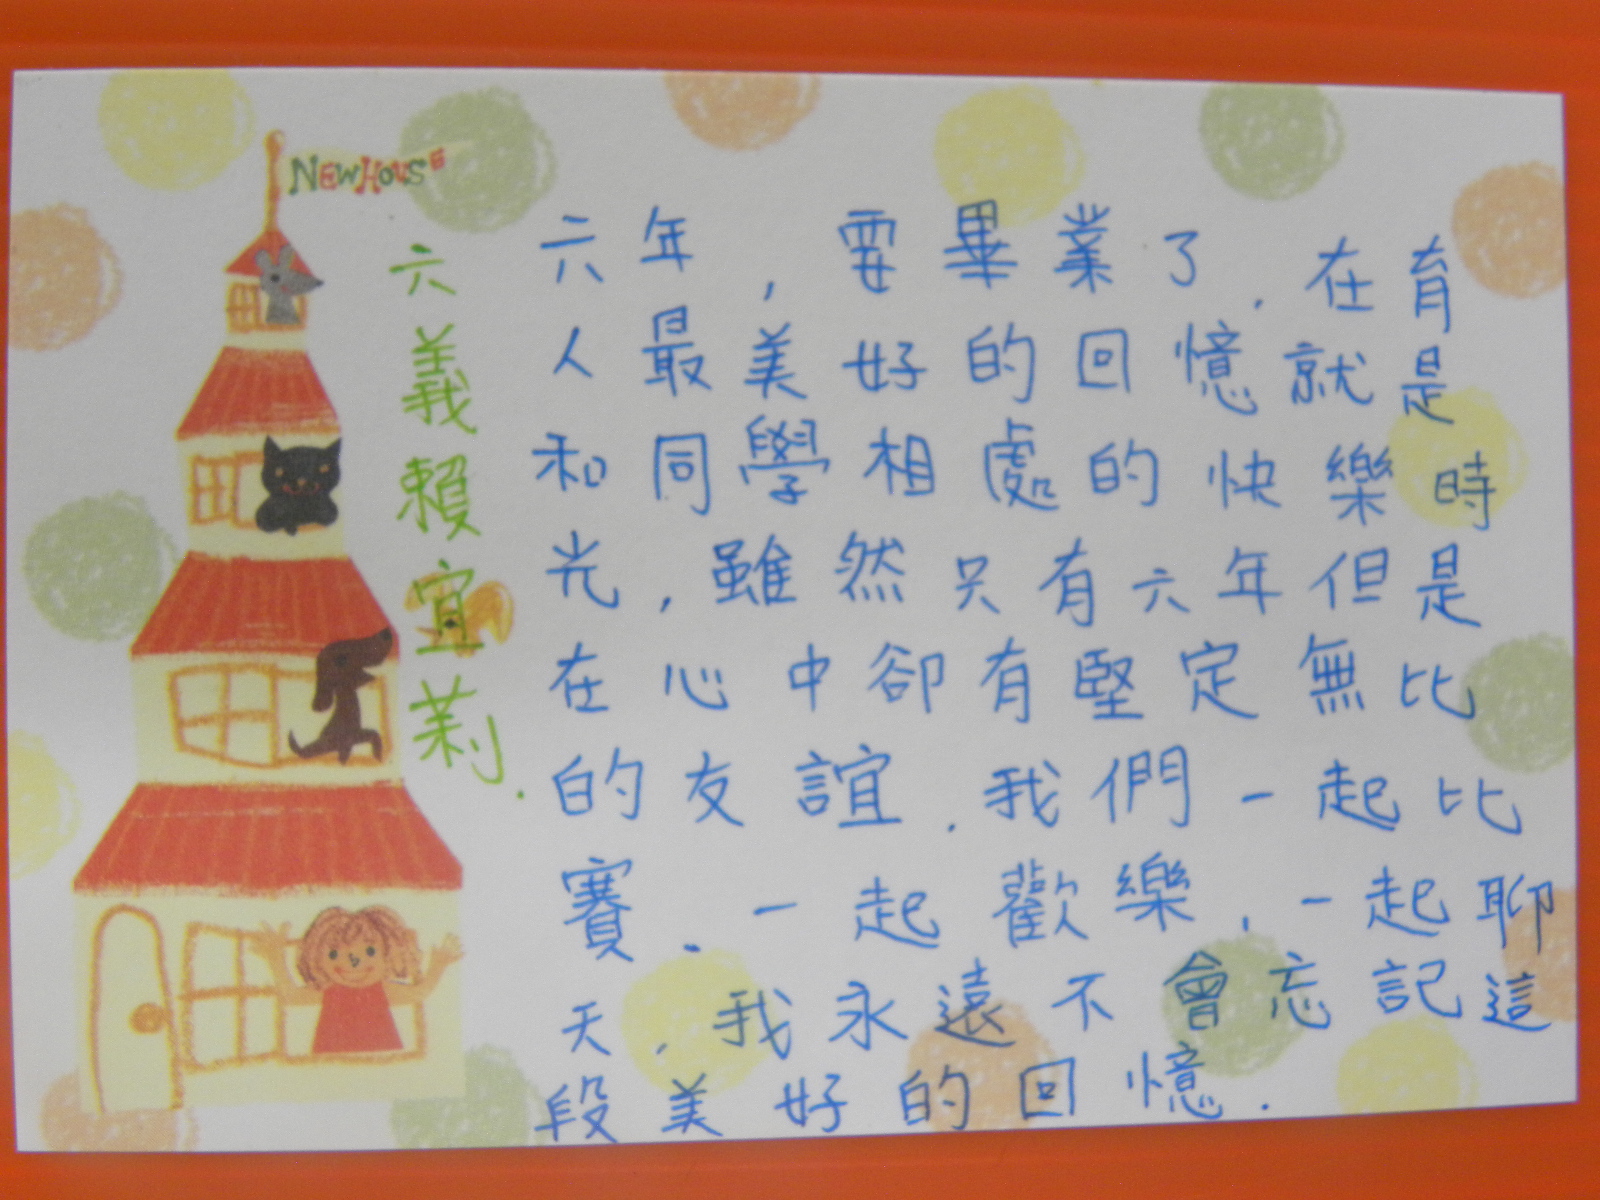 NEWHOUSE
六義賴宜茉.
六年，要畢業了，在育
人最美好的回憶就是
和同學相處的快樂時
光，雖然只有六年但是
在心中卻有堅定無比
的友誼，我們一起比
賽，一起歡樂，一起聊
天，我永遠不會忘記這
段美好的回憶.